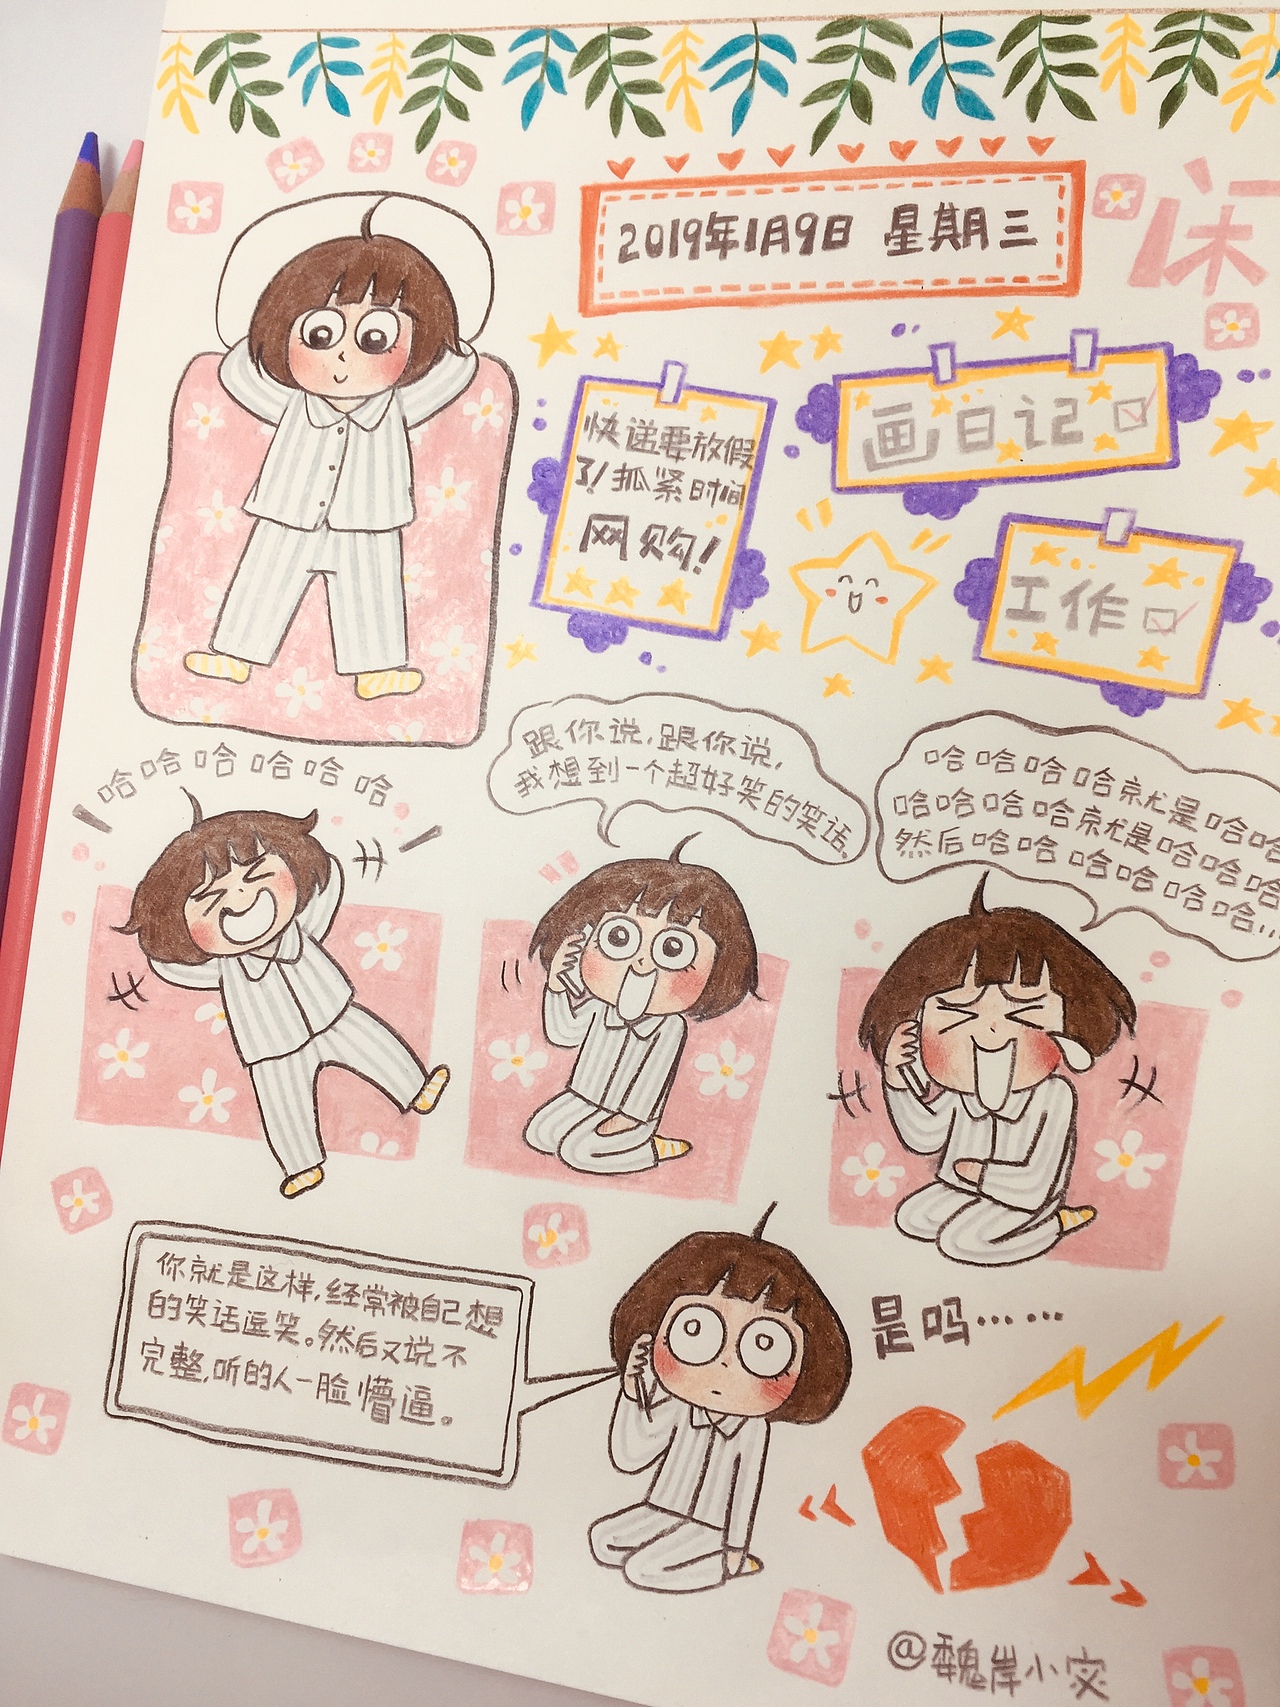 2019年1月9日 星期三
快递要放假
了!抓紧时间
网购!
画日记
工作
哈哈哈哈哈哈
跟你说,跟你说,
我想到一个超好笑的笑话。
哈哈哈哈就是哈哈
哈哈哈哈就是哈哈哈
然后哈哈哈哈哈哈...
你就是这样,经常被自己想
的笑话逗笑。然后又说不
完整,听的人一脸懵逼。
是吗……
@魏岸小宓